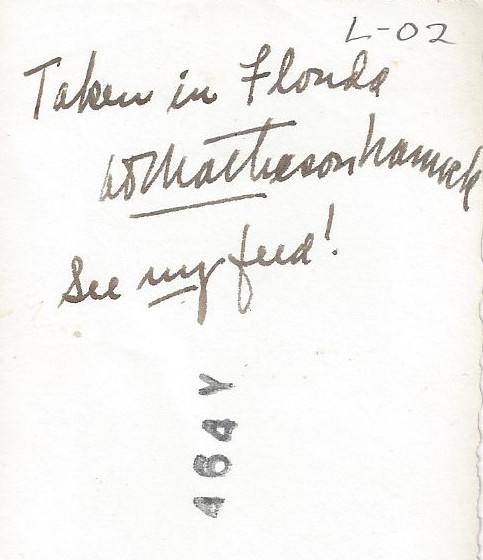 L-02
Taken in Florida
at Matheson hamock
See my feed!
464Y